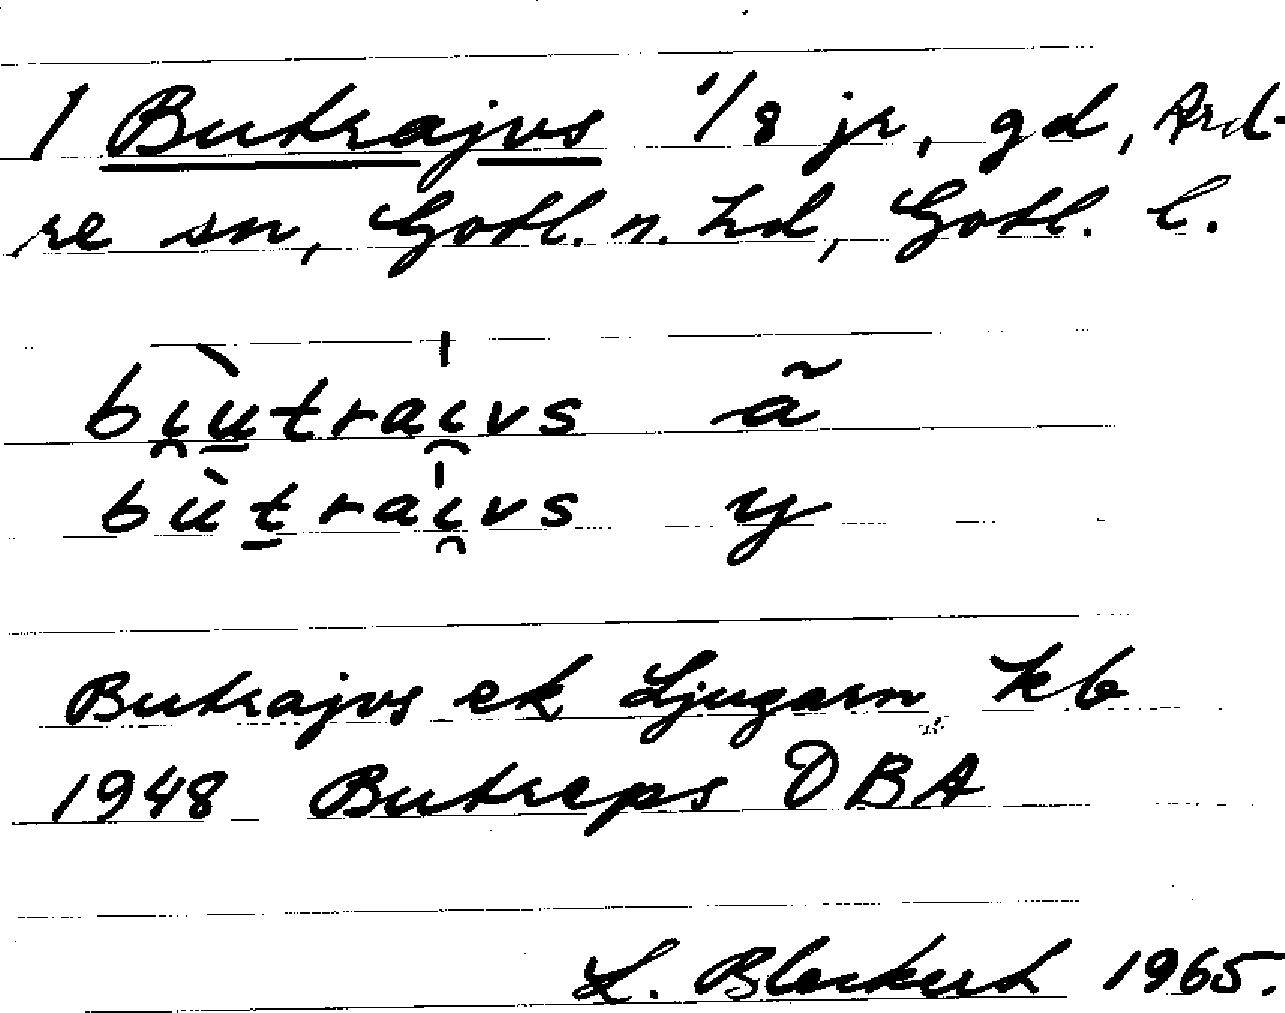 1 Butrajvs 1/8 jr, gd, Ard-
re sn, Gotl. n. hd, Gotl. l.
bi̯ùtrai̯vs ä̃
bùtrai̯vs y
Butrajvs ek Ljugarn kb
1948 Butreps OBA
L. Blockert 1965.